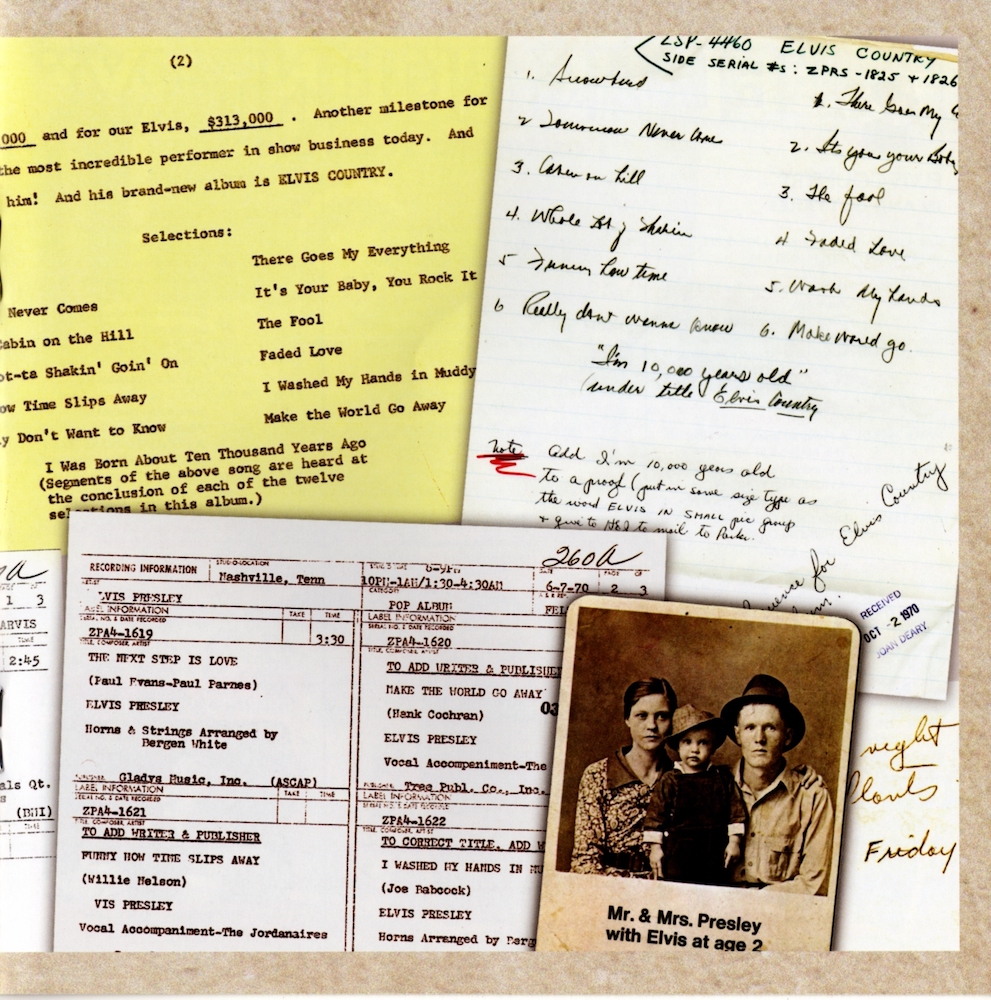 (2)
000 and for our Elvis, $313,000 . Another milestone for
the most incredible performer in show business today. And
him! And his brand-new album is ELVIS COUNTRY.
Selections:
There Goes My Everything
It's Your Baby, You Rock It
Never Comes
The Fool
abin on the Hill
Faded Love
ot-ta Shakin' Goin' On
I Washed My Hands in Muddy
ow Time Slips Away
Make the World Go Away
y Don't Want to Know
I Was Born About Ten Thousand Years Ago
(Segments of the above song are heard at
the conclusion of each of the twelve
selections in this album.)
LSP-4460 ELVIS COUNTRY
SIDE SERIAL #s: ZPRS-1825 + 1826
1. Snowbird
2 Tomorrow Never Come
3. Cabin on hill
4. Whole Lot of Shakin
5 Funny how time
6 Really don't wanna know
1. There Goes My E
2. Its your your Baby
3. The fool
4 Faded Love
5. Wash My hands
6. Make world go.
"I'm 10,000 years old"
(under title Elvis Country
note
add I'm 10,000 years old
to a proof (put in same size type as
the word ELVIS IN SMALL pic group
+ give to H&J to mail to Parker.
for Elvis Country
RECEIVED
OCT -2 1970
JOAN DEARY
1 3
ARVIS
TIME
2:45
als Qt.
s
(BMI)
TIME
260A
RECORDING INFORMATION
STUDIO-LOCATION
Nashville, Tenn
10PM-1AM/1:30-4:30AM
DATE
6-7-70
PAGE OF
2 3
ARTIST
ELVIS PRESLEY
CATEGORY
POP ALBUM
FEL
LABEL INFORMATION
TAKE
TIME
SERIAL NO. & DATE RECORDED
ZPA4-1619
3:30
TITLE, COMPOSER, ARTIST
THE NEXT STEP IS LOVE
(Paul Evans-Paul Parnes)
ELVIS PRESLEY
Horns & Strings Arranged by
Bergen White
PUBLISHER
Gladys Music, Inc. (ASCAP)
LABEL INFORMATION
SERIAL NO. & DATE RECORDED
ZPA4-1620
TITLE, COMPOSER, ARTIST
TO ADD WRITER & PUBLISHE
MAKE THE WORLD GO AWAY
03
(Hank Cochran)
ELVIS PRESLEY
Vocal Accompaniment-The
PUBLISHER
Tree Publ. Co., Inc.
LABEL INFORMATION
TAKE
TIME
SERIAL NO. & DATE RECORDED
ZPA4-1621
TITLE, COMPOSER, ARTIST
TO ADD WRITER & PUBLISHER
FUNNY HOW TIME SLIPS AWAY
(Willie Nelson)
VIS PRESLEY
Vocal Accompaniment-The Jordanaires
LABEL INFORMATION
SERIAL NO. & DATE RECORDED
ZPA4-1622
TITLE, COMPOSER, ARTIST
TO CORRECT TITLE, ADD W
I WASHED MY HANDS IN MU
(Joe Babcock)
ELVIS PRESLEY
Horns Arranged by Berg
Mr. & Mrs. Presley
with Elvis at age 2
Friday